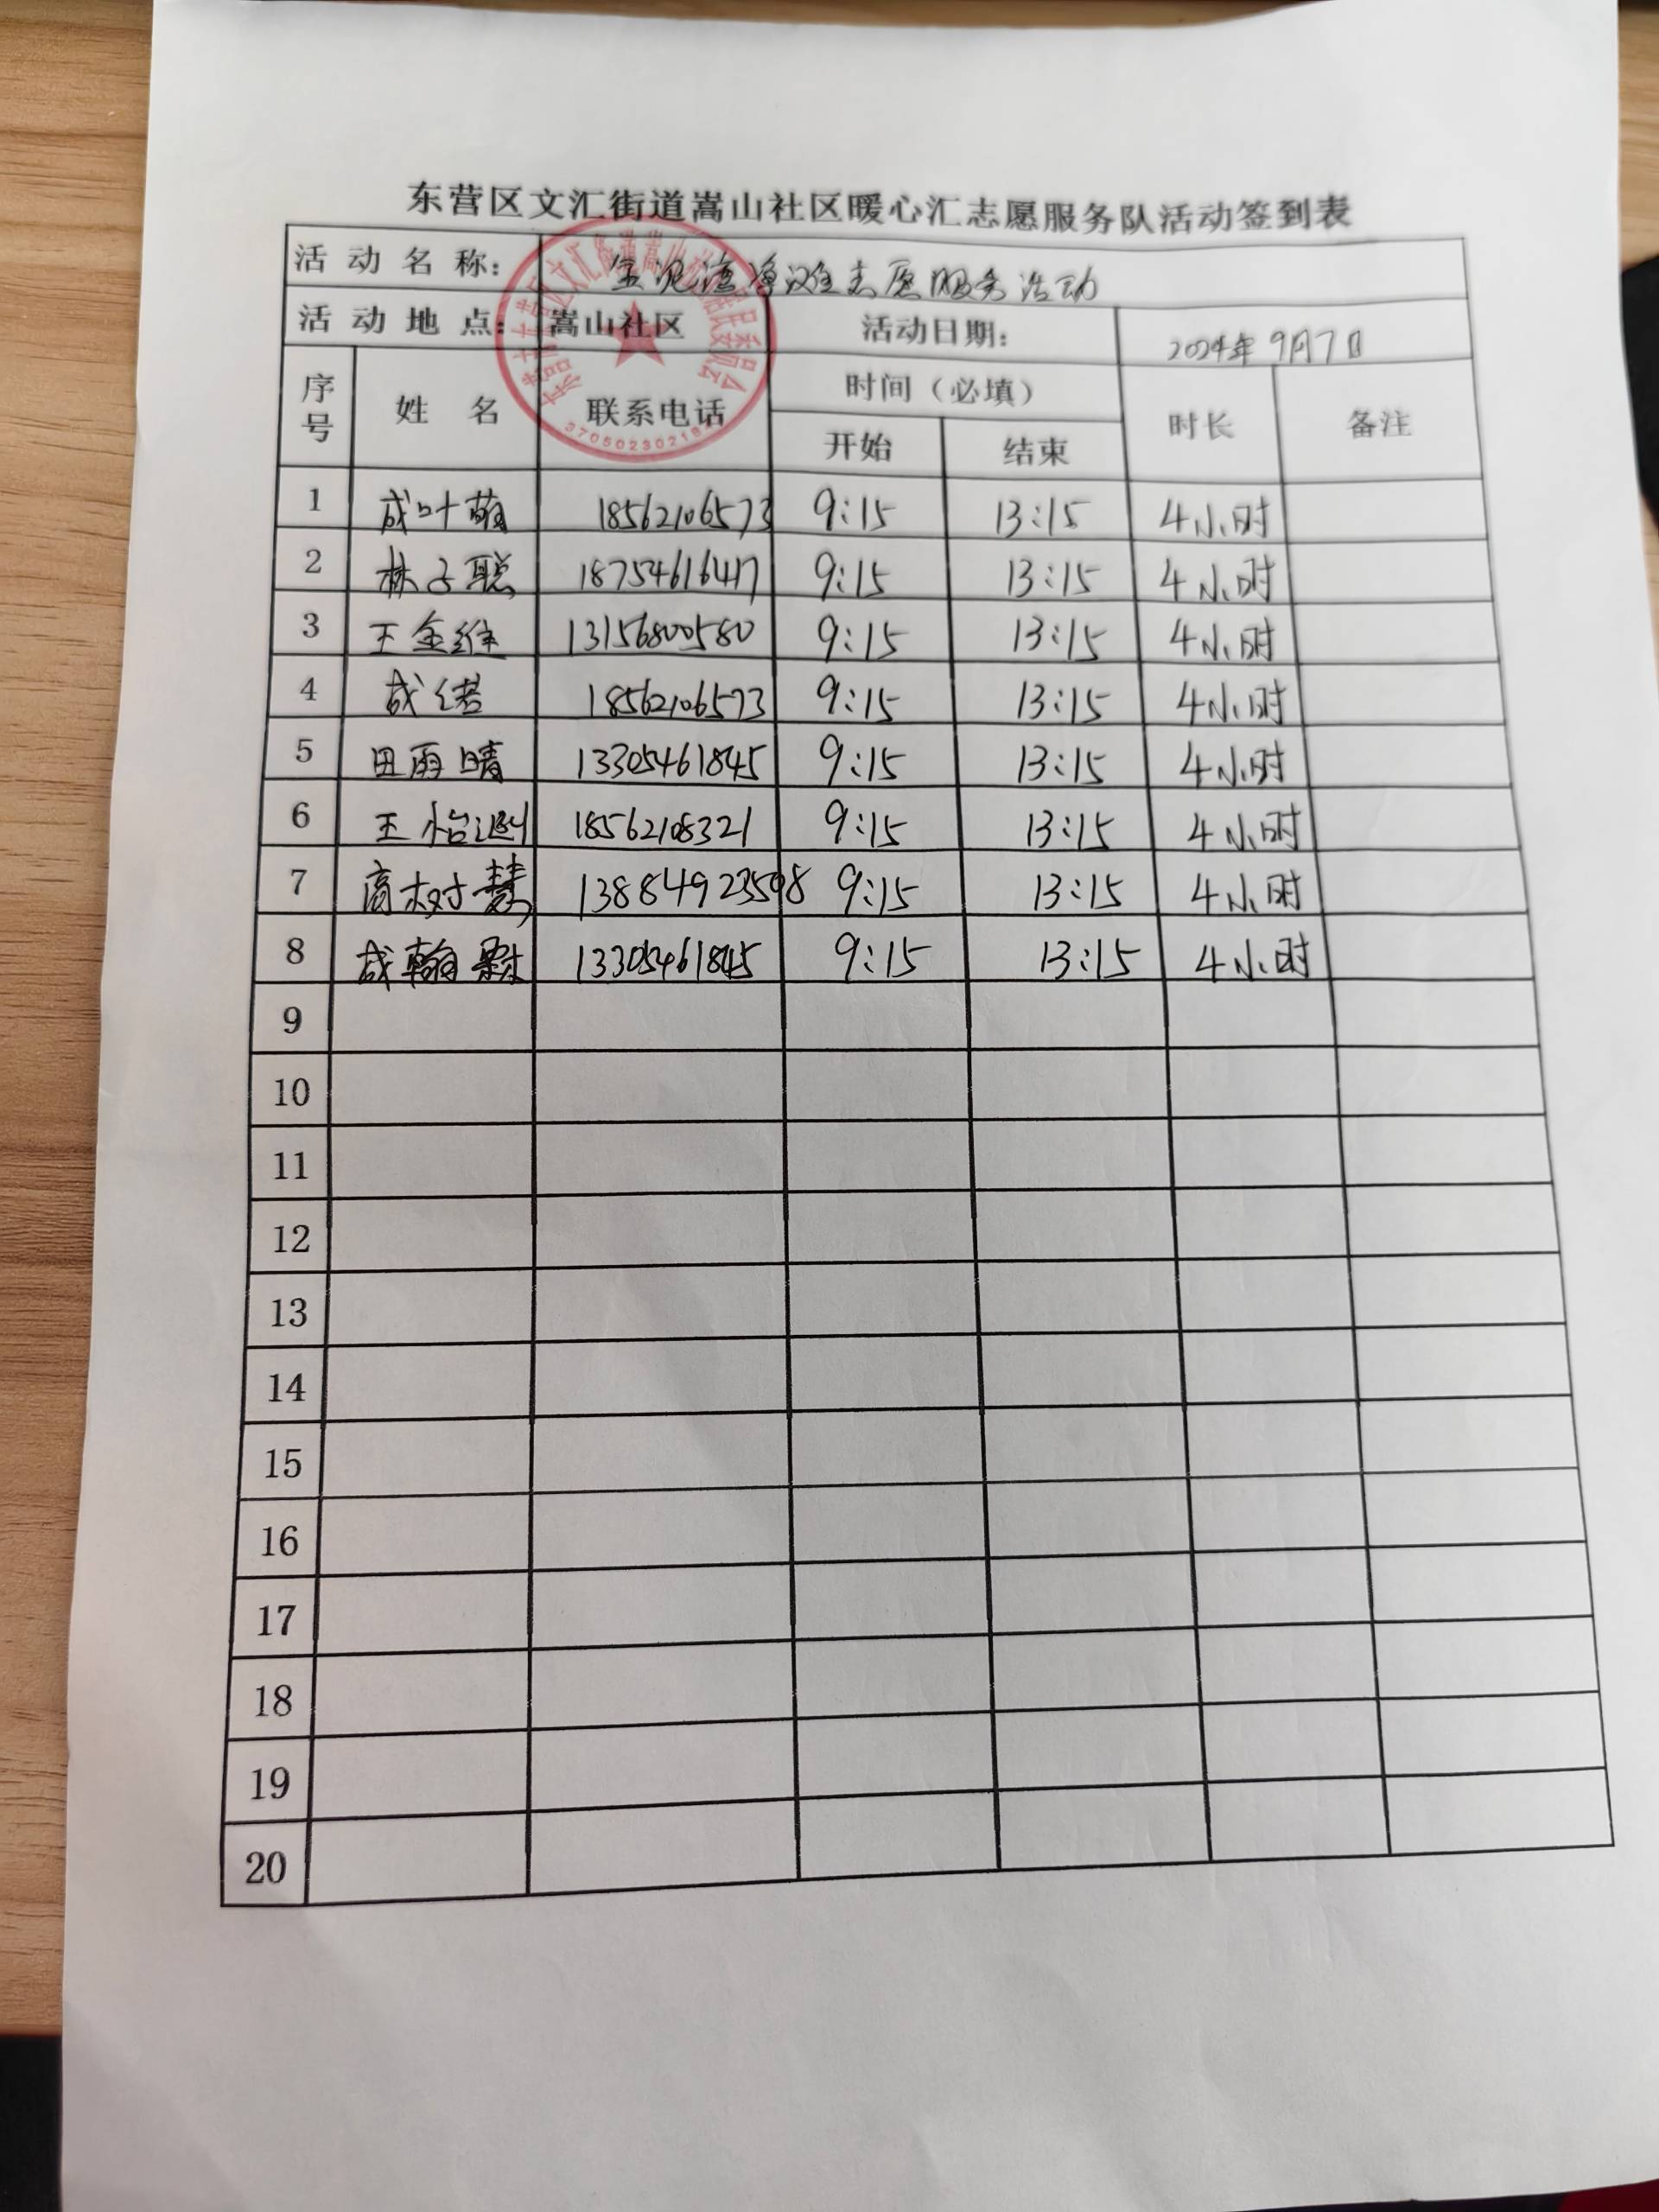 东营区文汇街道嵩山社区暖心汇志愿服务队活动签到表
活动名称: 志愿服务活动
活动地点: 嵩山社区 活动日期: 2024年9月7日
序号 姓名 联系电话 时间（必填） 时长 备注
开始 结束
3705023021
1 成叶萌 18562106573 9:15 13:15 4小时
2 林子聪 18754616417 9:15 13:15 4小时
3 王金维 13156800580 9:15 13:15 4小时
4 成绪 18562106573 9:15 13:15 4小时
5 田雨晴 13305461845 9:15 13:15 4小时
6 王怡 18562108321 9:15 13:15 4小时
7 高树慧 13884923598 9:15 13:15 4小时
8 成翰 13305461845 9:15 13:15 4小时
9
10
11
12
13
14
15
16
17
18
19
20